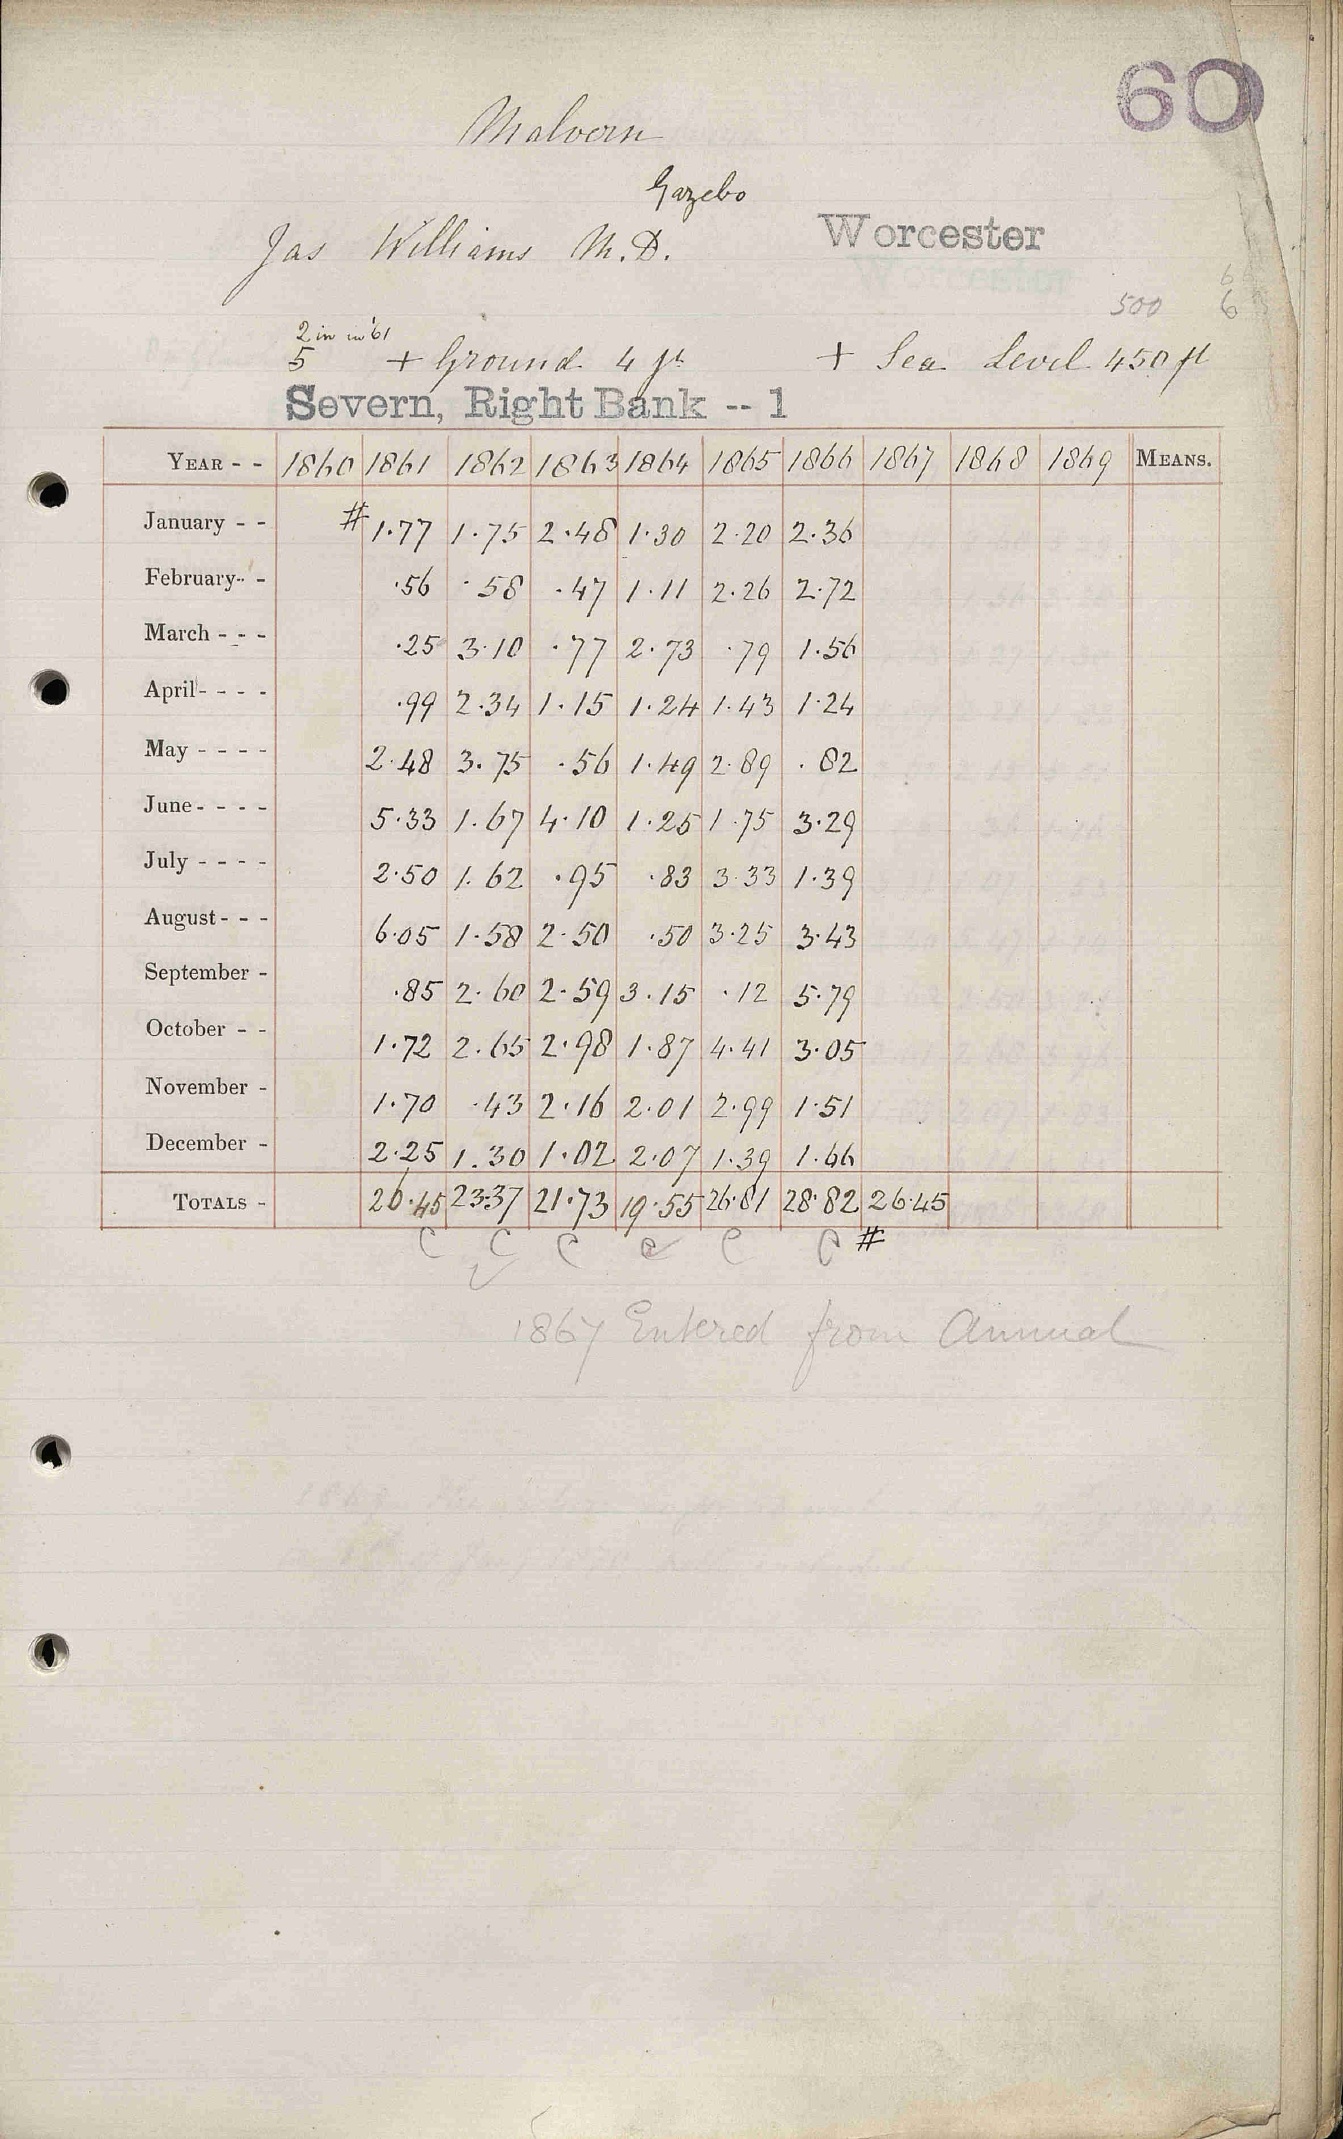 60
Malvern
Gazebo
Jas Williams M.D.
Worcester
Worcester
500 6
2 in in '61
5 + Ground 4 ft + Sea Level 450 ft
Severn, Right Bank -- 1
YEAR - - 1860 1861 1862 1863 1864 1865 1866 1867 1868 1869 MEANS.
January - - # 1.77 1.75 2.48 1.30 2.20 2.36
February - - .56 .58 .47 1.11 2.26 2.72
March - - - .25 3.10 .77 2.73 .79 1.56
April - - - - .99 2.34 1.15 1.24 1.43 1.24
May - - - - 2.48 3.75 .56 1.49 2.89 .82
June - - - - 5.33 1.67 4.10 1.25 1.75 3.29
July - - - - 2.50 1.62 .95 .83 3.33 1.39
August - - - 6.05 1.58 2.50 .50 3.25 3.43
September - .85 2.60 2.59 3.15 .12 5.79
October - - 1.72 2.65 2.98 1.87 4.41 3.05
November - 1.70 .43 2.16 2.01 2.99 1.51
December - 2.25 1.30 1.02 2.07 1.39 1.66
TOTALS - 26.45 23.37 21.73 19.55 26.81 28.82 26.45
C C C C C C #
1867 Entered from Annual